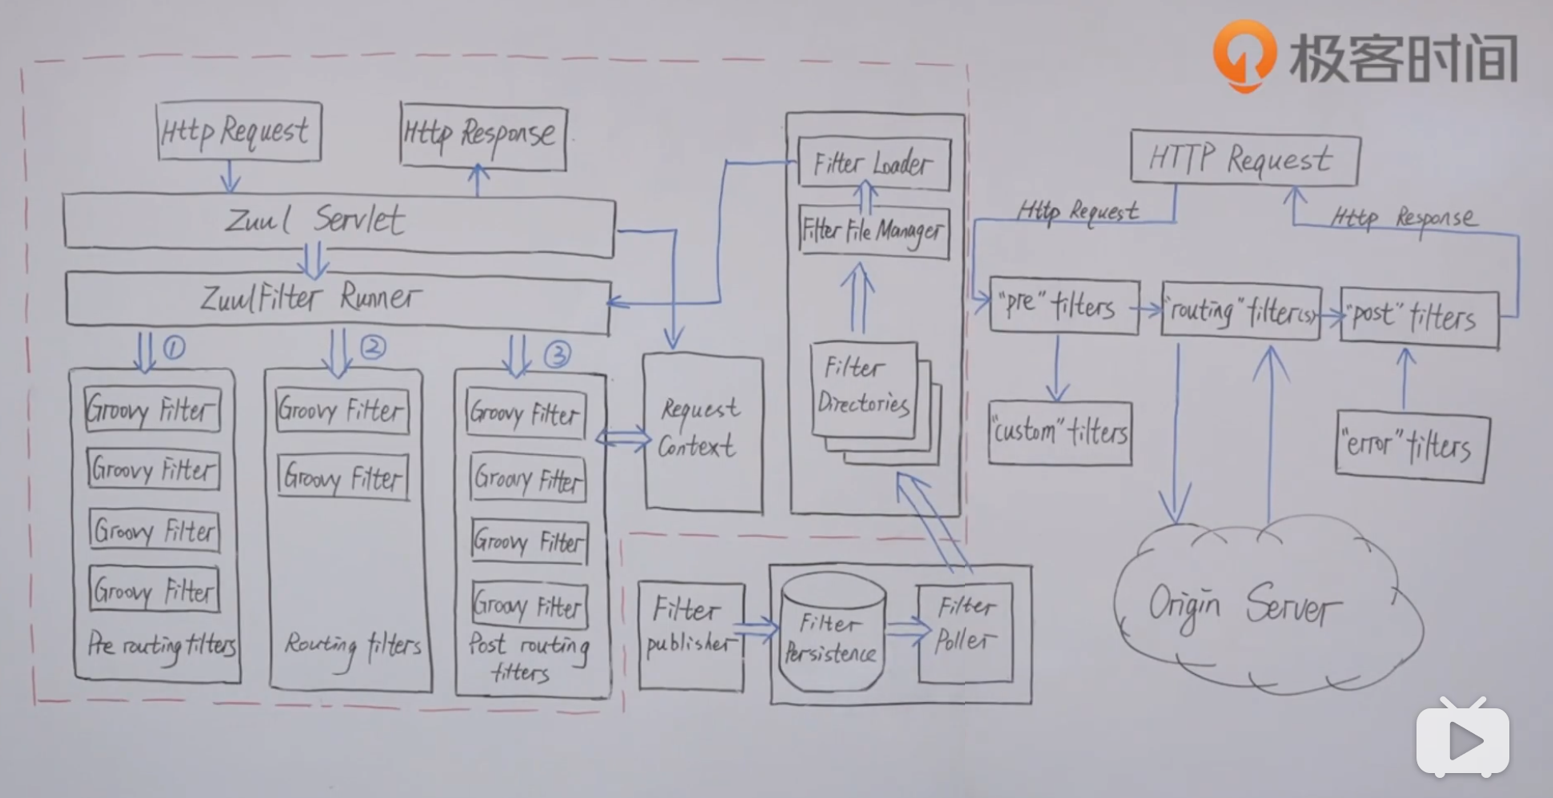 极客时间
Http Request
Http Response
Zuul Servlet
ZuulFilter Runner
①
②
③
Groovy Filter
Groovy Filter
Groovy Filter
Groovy Filter
Pre routing filters
Groovy Filter
Groovy Filter
Routing filters
Groovy Filter
Groovy Filter
Groovy Filter
Groovy Filter
Post routing
filters
Request
Context
Filter Loader
Filter File Manager
Filter
Directories
Filter
publisher
Filter
Persistence
Filter
Poller
HTTP Request
Http Request
Http Response
"pre" filters
"routing" filter(s)
"post" filters
"custom" filters
"error" filters
Origin Server